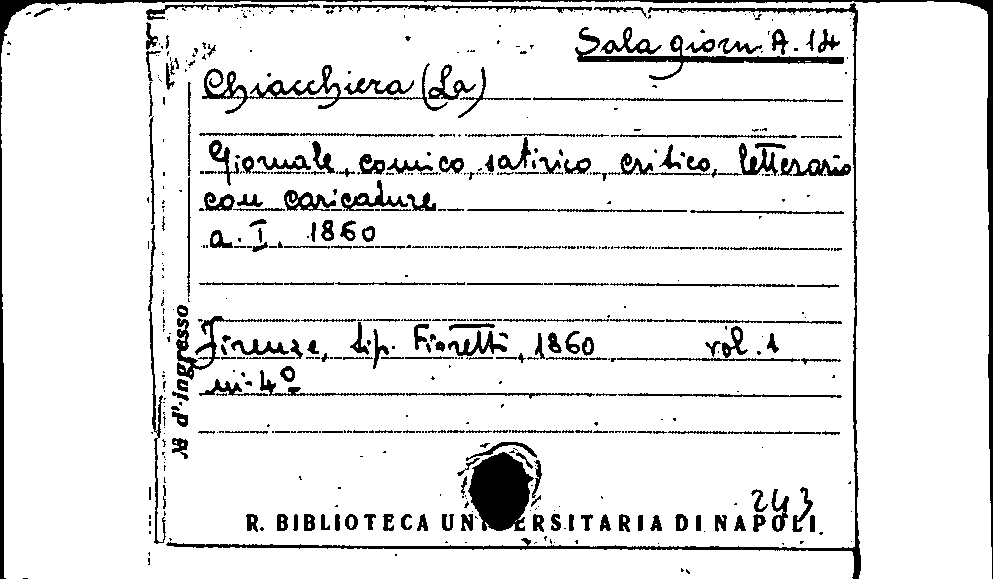 Sala giorn. A. 14
Chiacchiera (La)
Giornale, comico, satirico, critico, letterario
con caricature
a. I. 1860
Firenze, tip. Fioretti, 1860 vol. 1
in-4º
№ d'ingresso
243
R. BIBLIOTECA UNIVERSITARIA DI NAPOLI.